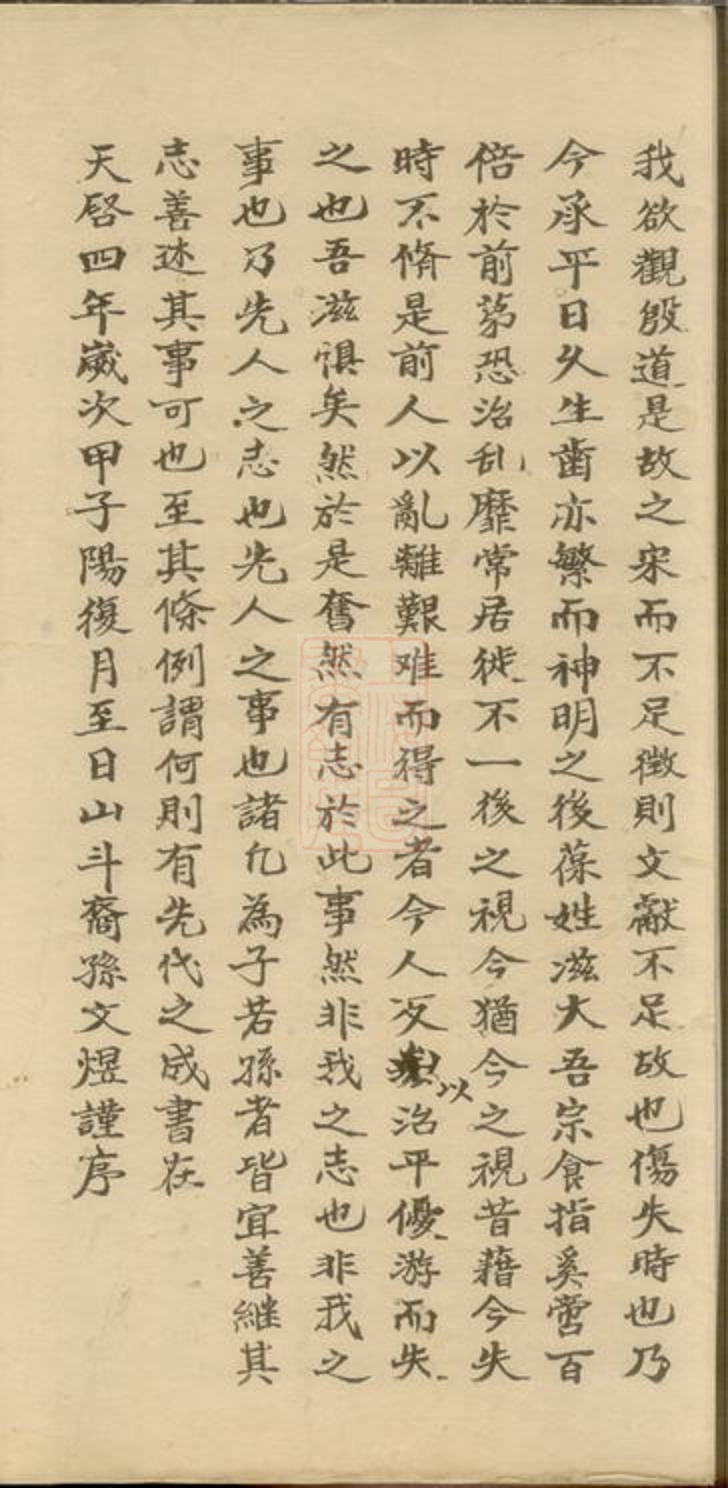 我欲觀殷道是故之宋而不足徴則文獻不足故也傷失時也乃
今承平日久生齒亦繁而神明之後葆姓滋大吾宗食指奚啻百
倍於前苐恐治乱靡常居徙不一後之視今猶今之視昔藉今失
時不脩是前人以亂離艱难而得之者今人反以治平優游而失
之也吾滋懼矣然於是奮然有志於此事然非我之志也非我之
事也乃先人之志也先人之事也諸凢為子若孫者皆宜善継其
志善述其事可也至其條例謂何則有先代之成書在
天啓四年嵗次甲子陽復月至日山斗裔孫文煜謹序